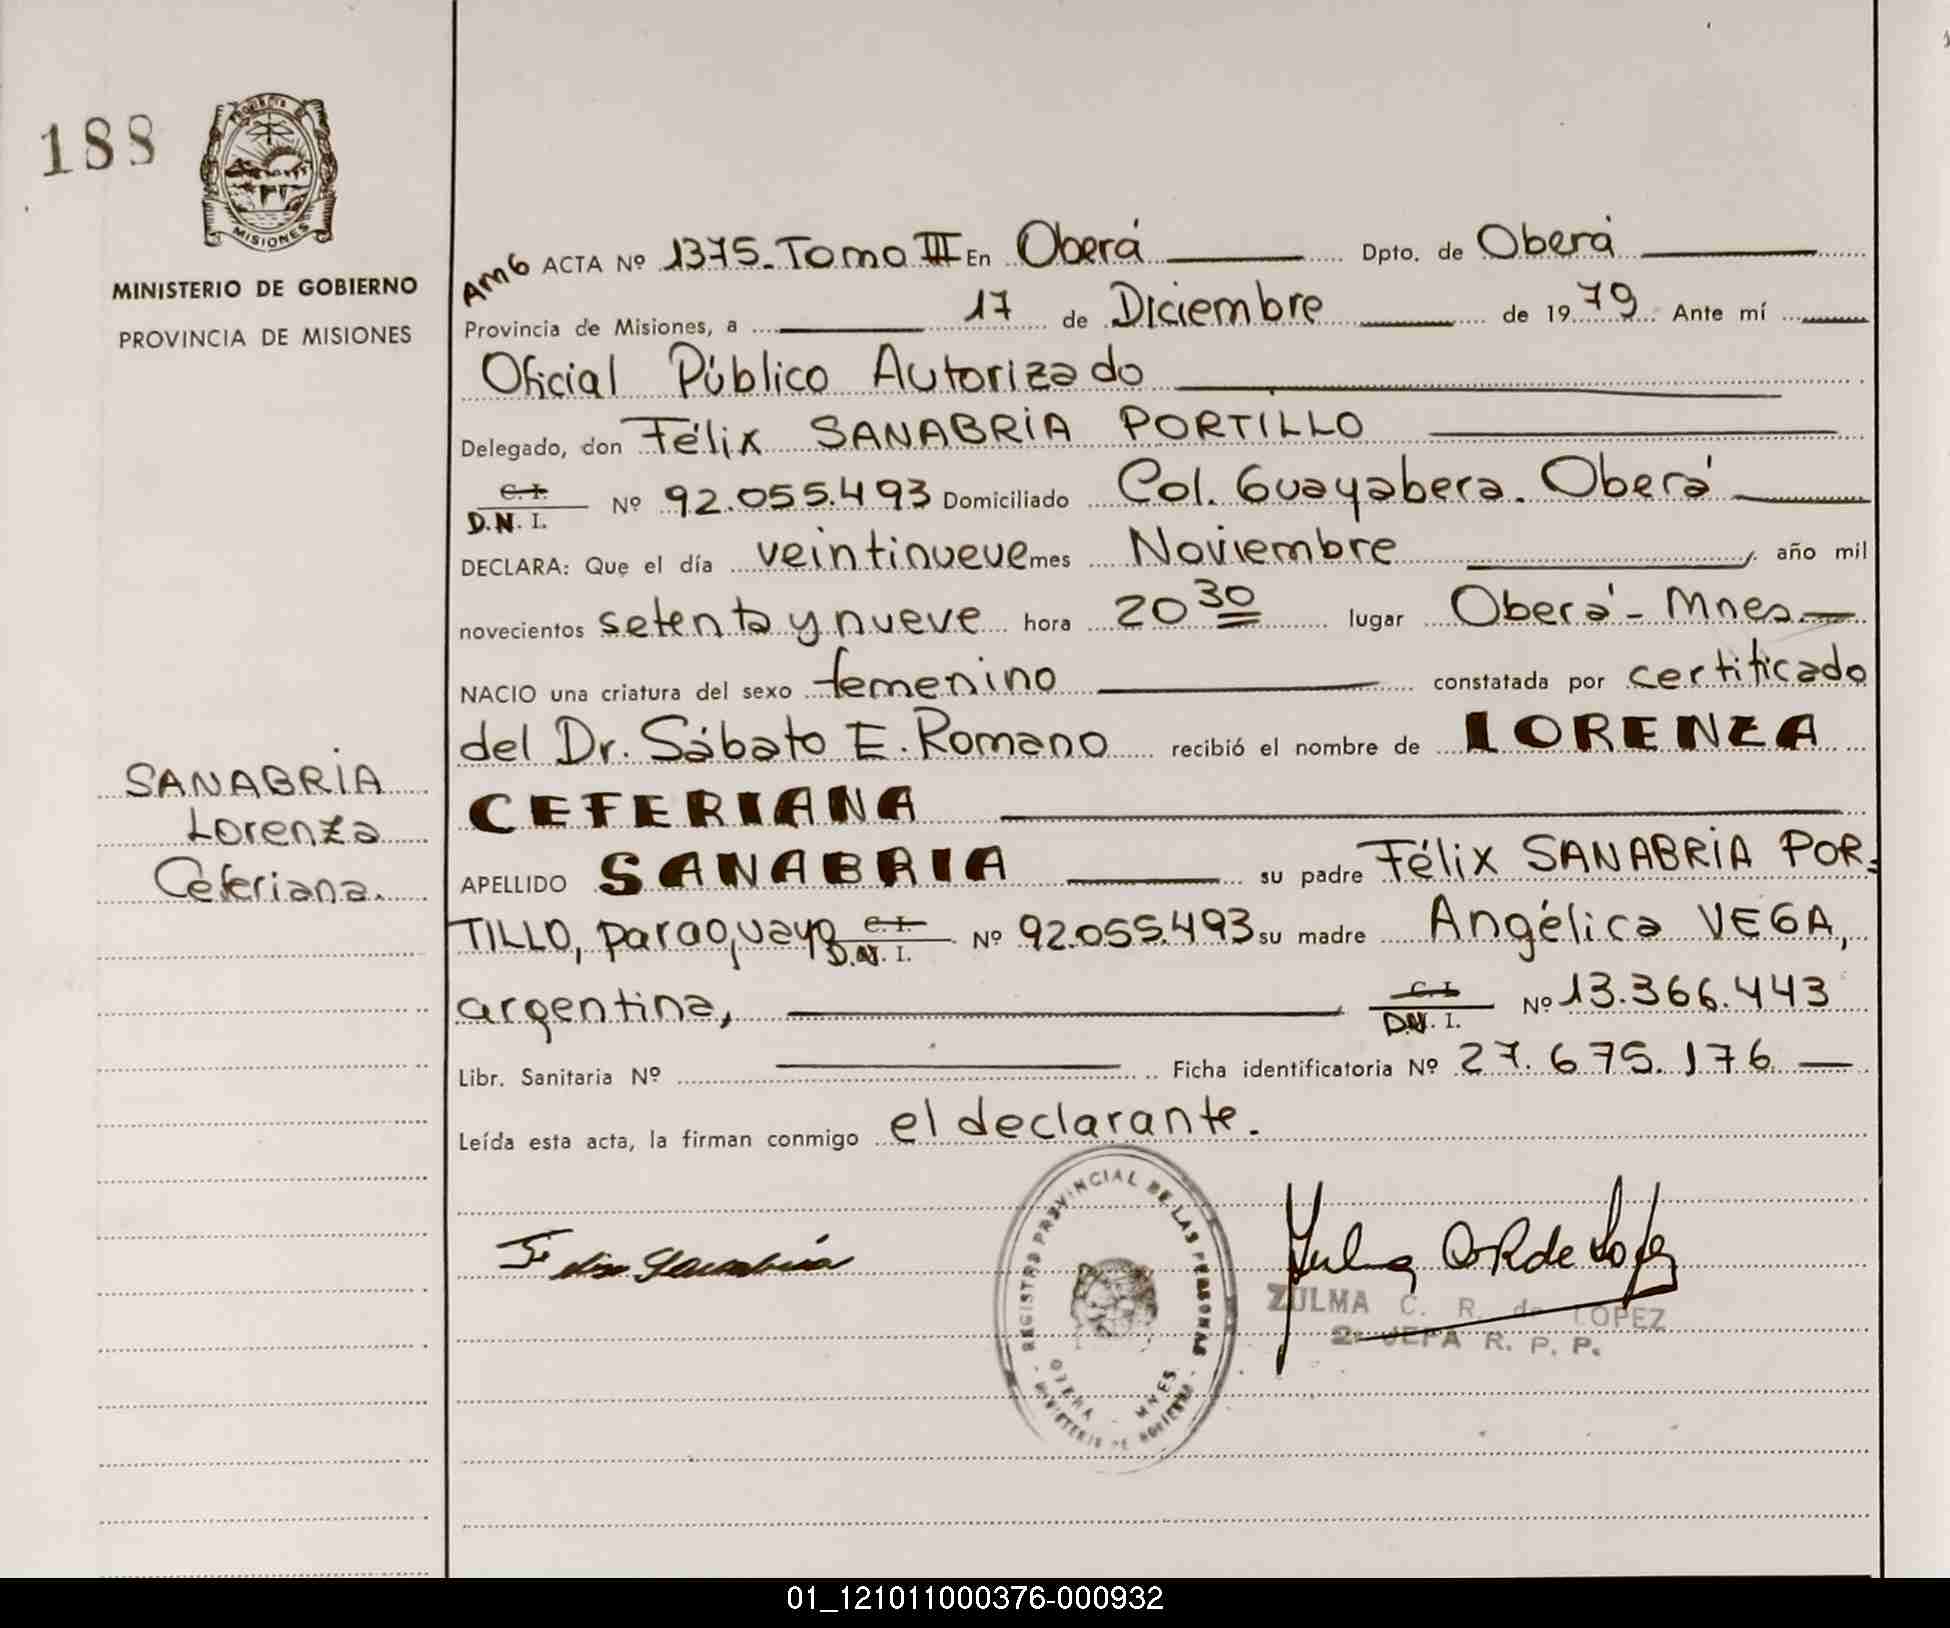 188
MISIONES
MINISTERIO DE GOBIERNO
PROVINCIA DE MISIONES
Am6 ACTA Nº 1375. Tomo III En Oberá Dpto. de Oberá
Provincia de Misiones, a 17 de Diciembre de 1979 Ante mí
Oficial Público Autorizado
Delegado, don Félix SANABRIA PORTILLO
C. I.
D.N. I. Nº 92.055.493 Domiciliado Col. Guayabera. Oberá
DECLARA: Que el día veintinueve mes Noviembre, año mil
novecientos setenta y nueve hora 20 30 lugar Oberá - Mnes.
NACIO una criatura del sexo femenino constatada por certificado
del Dr. Sábato E. Romano recibió el nombre de LORENZA
CEFERIANA
APELLIDO SANABRIA su padre Félix SANABRIA POR-
TILLO, paraguayo C. I. D.N. I. Nº 92.055.493 su madre Angélica VEGA,
argentina, C. I. D.N. I. Nº 13.366.443
Libr. Sanitaria Nº Ficha identificatoria Nº 27.675.176
Leída esta acta, la firman conmigo el declarante.
SANABRIA
Lorenza
Ceferiana.
Felix Sanabria
REGISTRO PROVINCIAL DE LAS PERSONAS
OBERA - MNES.
MINISTERIO DE GOBIERNO
Zulma C R de Lopez
ZULMA C. R. de LOPEZ
2º JEFA R. P. P.
01_121011000376-000932